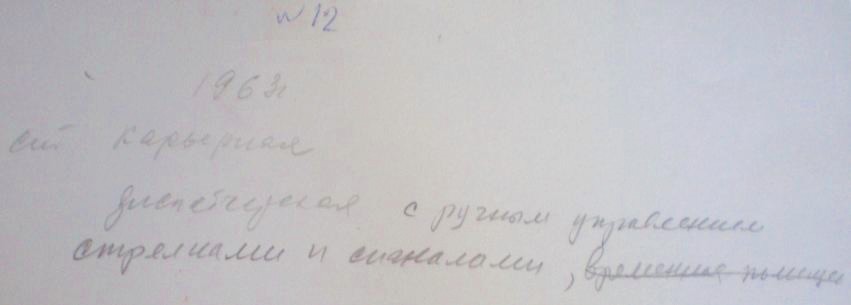 № 12
1963г
ст Карьерная
диспетчерская с ручным управлением
стрелками и сигналами, временное помеще